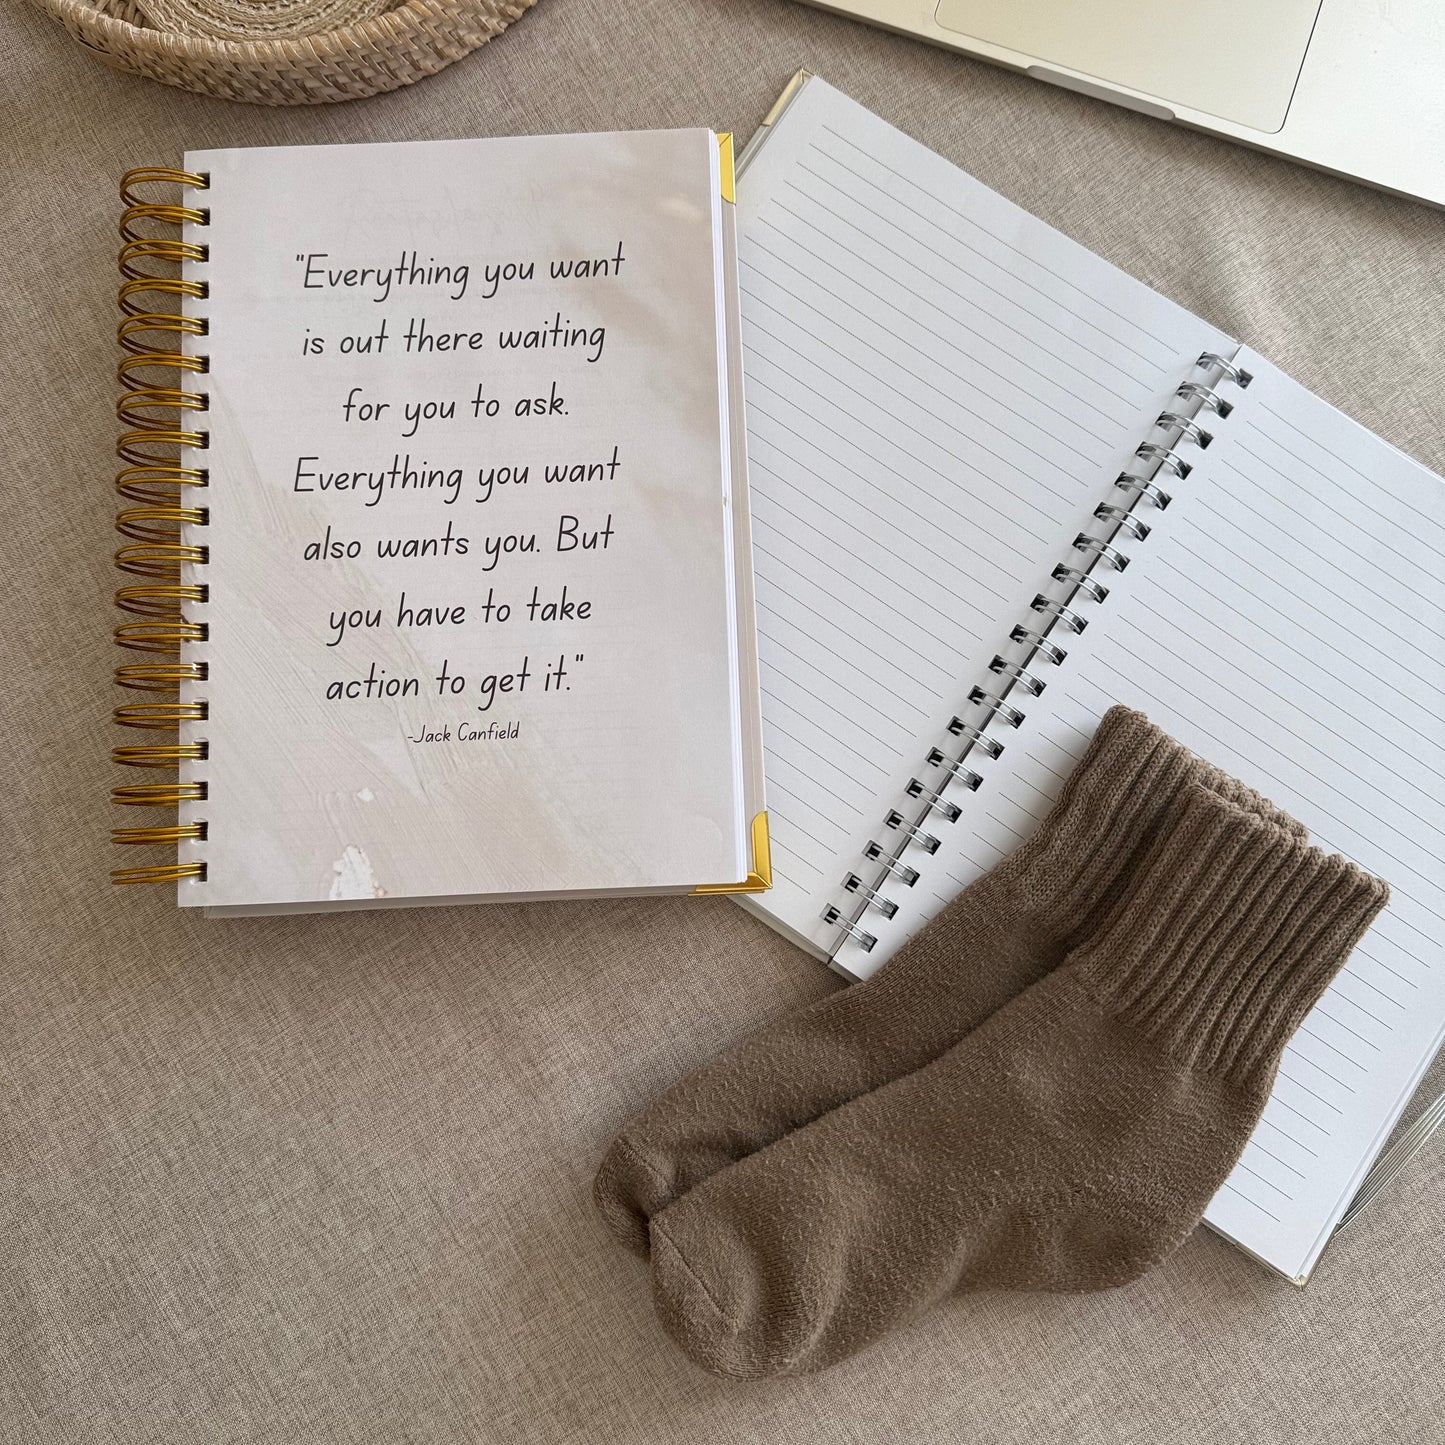 "Everything you want
is out there waiting
for you to ask.
Everything you want
also wants you. But
you have to take
action to get it."
-Jack Canfield